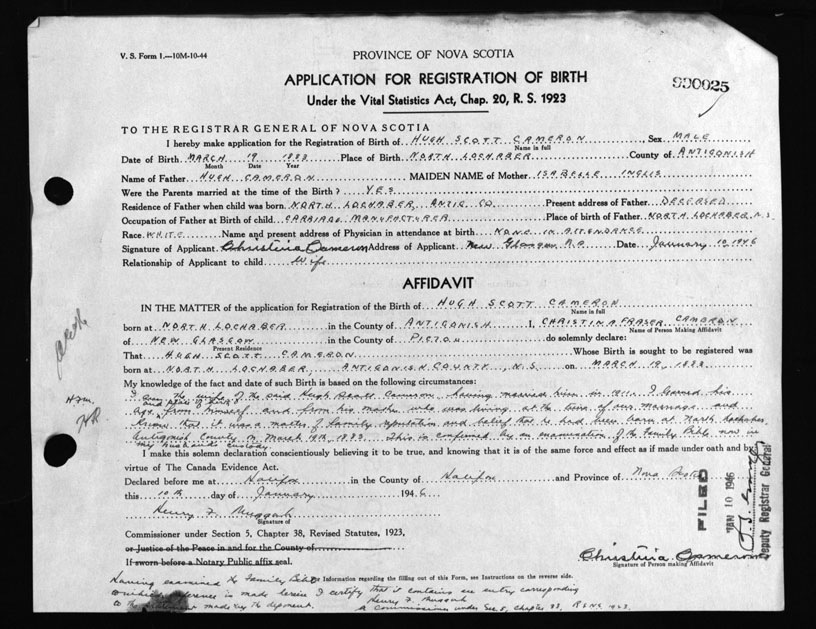 V. S. Form 1.—10M-10-44
PROVINCE OF NOVA SCOTIA
APPLICATION FOR REGISTRATION OF BIRTH
990025
Under the Vital Statistics Act, Chap. 20, R. S. 1923
TO THE REGISTRAR GENERAL OF NOVA SCOTIA
I hereby make application for the Registration of Birth of HUGH SCOTT CAMERON Sex MALE
Name in full
Date of Birth MARCH 19 1883 Place of Birth NORTH LOCHABER County of ANTIGONISH
Month Date Year
Name of Father HUGH CAMERON MAIDEN NAME of Mother ISABELLE INGLIS
Were the Parents married at the time of the Birth? YES
Residence of Father when child was born NORTH LOCHABER ANTIG CO. Present address of Father DECEASED
Occupation of Father at Birth of child CARRIAGE MANUFACTURER Place of birth of Father NORTH LOCHABER N.S
Race WHITE Name and present address of Physician in attendance at birth NONE IN ATTENDANCE
Signature of Applicant Christina Cameron Address of Applicant New Glasgow N.S Date January 10 1946
Relationship of Applicant to child Wife
AFFIDAVIT
IN THE MATTER of the application for Registration of the Birth of HUGH SCOTT CAMERON
Name in full
born at NORTH LOCHABER in the County of ANTIGONISH I, CHRISTINA FRASER CAMERON
Name of Person Making Affidavit
of NEW GLASGOW in the County of PICTOU do solemnly declare:
Present Residence
That HUGH SCOTT CAMERON Whose Birth is sought to be registered was
born at NORTH LOCHABER, ANTIGONISH COUNTY, N.S on MARCH 19, 1883
My knowledge of the fact and date of such Birth is based on the following circumstances:
I am the wife of the said Hugh Scott Cameron, having married him in 1911. I learned his
age and place of birth from himself and from his mother who was living at the time of our marriage and
know that it was a matter of family reputation and belief that he had been born at North Lochaber,
Antigonish County on March 19th, 1883. This is confirmed by an examination of the Family Bible now in
my husband's custody
I make this solemn declaration conscientiously believing it to be true, and knowing that it is of the same force and effect as if made under oath and by
virtue of The Canada Evidence Act.
Declared before me at Halifax in the County of Halifax and Province of Nova Scotia
this 10th day of January 1946
Henry F. Muggah
Signature of
Commissioner under Section 5, Chapter 38, Revised Statutes, 1923,
or Justice of the Peace in and for the County of
If sworn before a Notary Public affix seal.
Christina Cameron
Signature of Person making Affidavit
Information regarding the filling out of this Form, see Instructions on the reverse side.
Having examined the Family Bible
to which reference is made herein I certify that it contains an entry corresponding
to the statement made by the deponent.
Henry F. Muggah
A commissioner under Sec. 5, Chapter 38, RSNS 1923.
FILED
JAN 10 1946
Deputy Registrar General